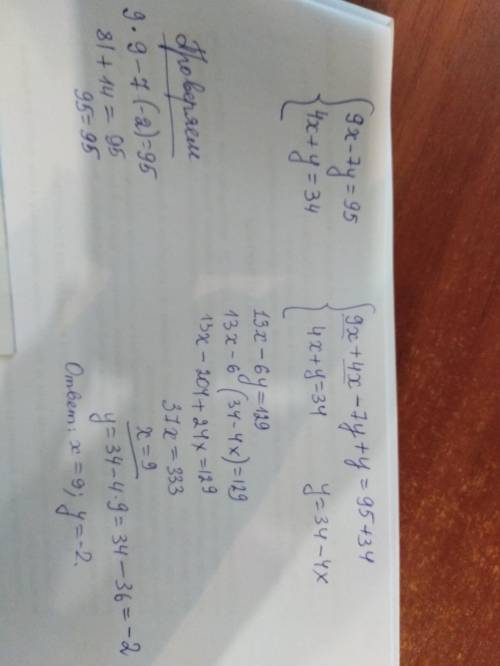 {9x-7y=95
{4x+y=34
{9x+4x-7y+y=95+34
{4x+y=34 y=34-4x
13x-6y=129
13x-6(34-4x)=129
13x-204+24x=129
37x=333
x=9
y=34-4·9=34-36=-2
Ответ: x=9; y=-2.
Проверяем
9·9-7(-2)=95
81+14=95
95=95